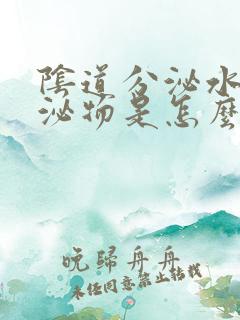 陰道分泌水
泌物是怎麼
晚歸舟舟
未经同意禁止转载